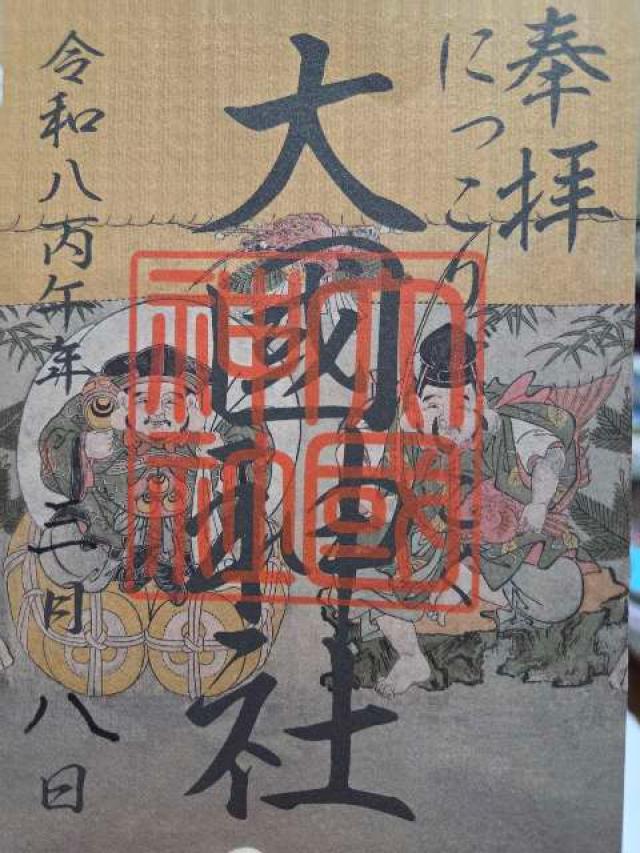 奉拝
にっこり
大國神社
大國
神社
令和八丙午年 三月八日